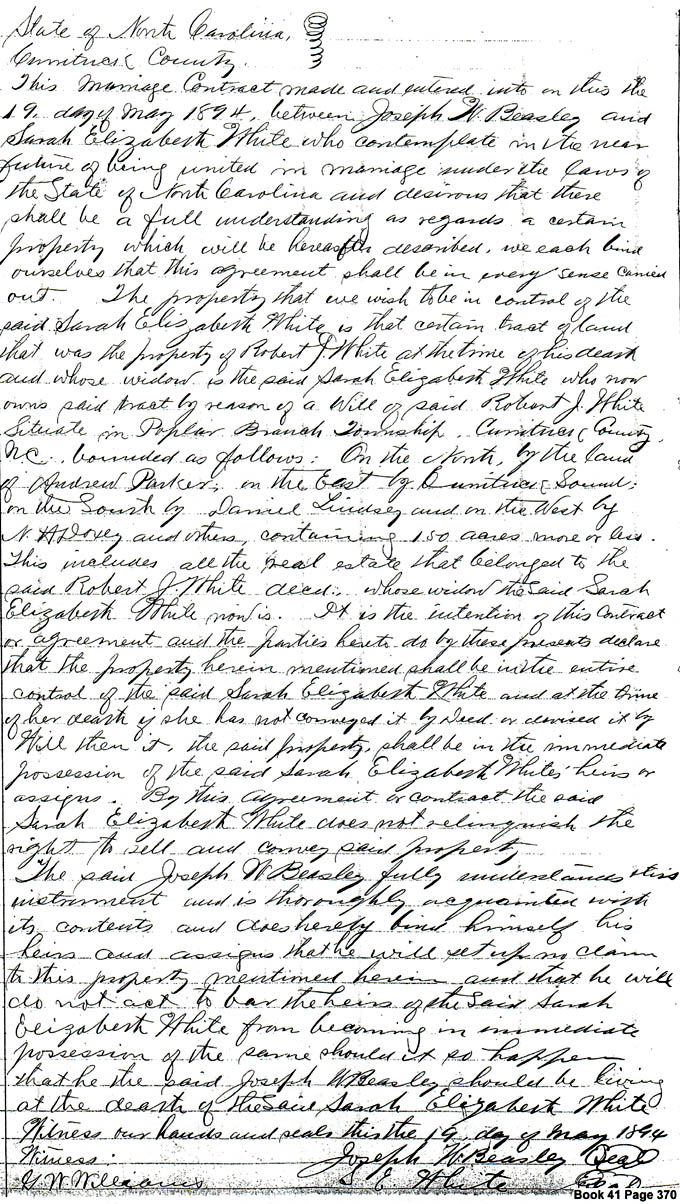 State of North Carolina,
Currituck County.
This Marriage Contract made and entered into on this the
19. day of May 1894, between Joseph W. Beasley and
Sarah Elizabeth White who contemplate in the near
future of being united in marriage under the laws of
the State of North Carolina and desirous that there
shall be a full understanding as regards a certain
property which will be hereafter described. we each bind
ourselves that this agreement shall be in every sense carried
out. The property that we wish to be in control of the
said Sarah Elizabeth White is that certain tract of land
that was the property of Robert J. White at the time of his death
and whose widow is the said Sarah Elizabeth White who now
owns said tract by reason of a Will of said Robert J. White
Situate in Poplar Branch Township. Currituck County,
N.C. bounded as follows: On the North, by the land
of Andrew Parker; on the East by Currituck Sound;
on the South by Daniel Lindsey and on the West by
N. H. Dovey and others, containing 150 acres more or less.
This includes all the real estate that belonged to the
said Robert J. White decd., whose widow the Said Sarah
Elizabeth White now is. It is the intention of this Contract
or agreement and the parties hereto do by these presents declare
that the property herein mentioned shall be in the entire
control of the said Sarah Elizabeth White and at the time
of her death if she has not conveyed it by Deed or devised it by
Will then it, the said property, shall be in the immediate
possession of the said Sarah Elizabeth White's heirs or
assigns. By this agreement or contract the said
Sarah Elizabeth White does not relinquish the
right to sell and convey said property
The said Joseph W Beasley fully understands this
instrument and is thoroughly acquainted with
its contents and does hereby bind himself his
heirs and assigns that he will set up no claim
to this property mentioned herein and that he will
do not act to bar the heirs of the Said Sarah
Elizabeth White from becoming in immediate
possession of the same should it so happen
that he the said Joseph W Beasley should be living
at the death of the Said Sarah Elizabeth White
Witness our hands and seals this the 19 day of May 1894
Witness: Joseph W. Beasley Seal
Y. W. Williams S. E. White Seal
Book 41 Page 370